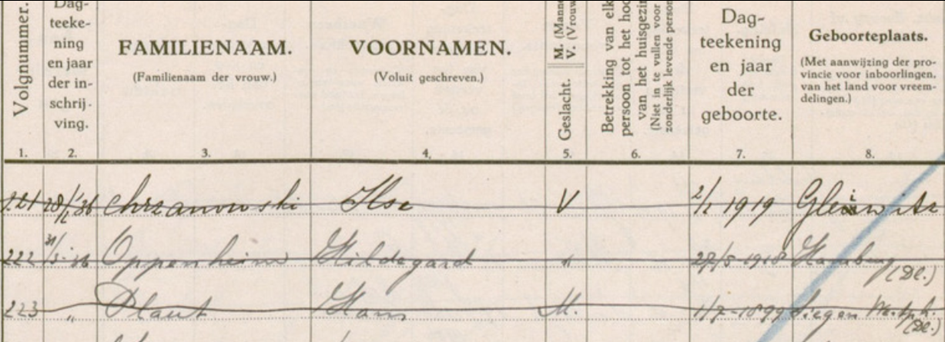 Volgnummer.
Dag-
teeke-
ning
en jaar
der in-
schrij-
ving.
FAMILIENAAM.
(Familienaam der vrouw.)
VOORNAMEN.
(Voluit geschreven.)
Geslacht. M. (Manne
V. (Vrouw
Betrekking van elk
persoon tot het hoo
van het huisgezin
(Niet in te vullen voor
zonderlijk levende person
Dag-
teekening
en jaar
der
geboorte.
Geboorteplaats.
(Met aanwijzing der pro-
vincie voor inboorlingen,
van het land voor vreem-
delingen.)
1. 2. 3. 4. 5. 6. 7. 8.
221 Chrzanowski Ilse V 2/2 1919 Gleiwitz
222 Oppenheim Hildegard " 27/5-1918 Hamburg
(Dl.)
223 " Plaut Hans M. 1/7-1899 Siegen Westph.
(Dl.)